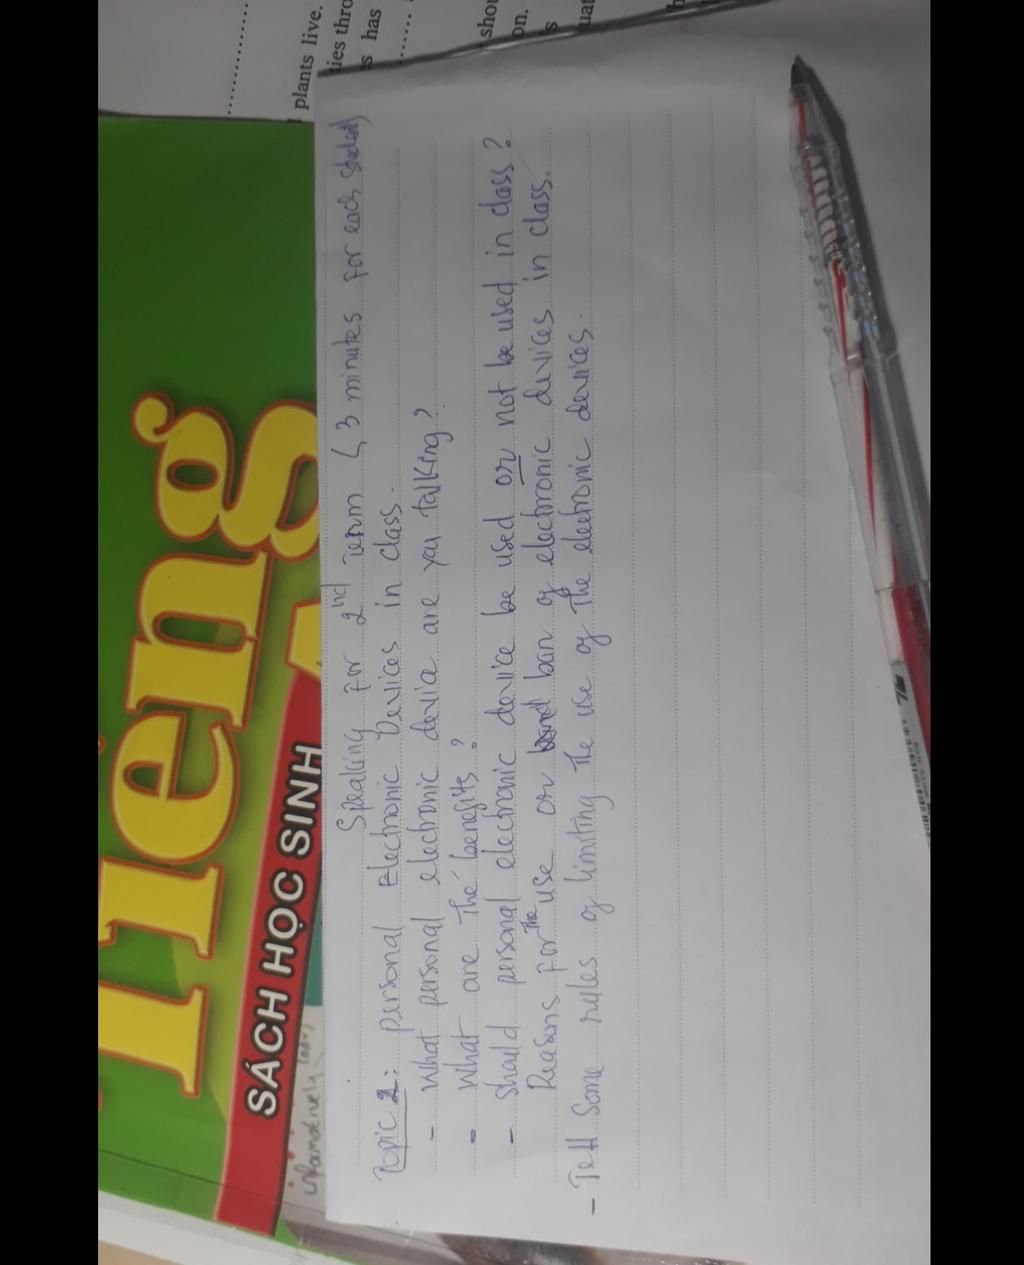 plants live.
ties thro
s has
shou
on.
s
uat
Tiếng
A
SÁCH HỌC SINH
informatively (adv)
Speaking for 2nd term ( 3 minutes for each student)
Topic 2: personal Electronic Devices in class.
- What personal electronic device are you talking?
- What are the benefits?
- Should personal electronic device be used or not be used in class?
Reasons for the use or ban of electronic devices in class.
- Tell some rules of limiting the use of the electronic devices.